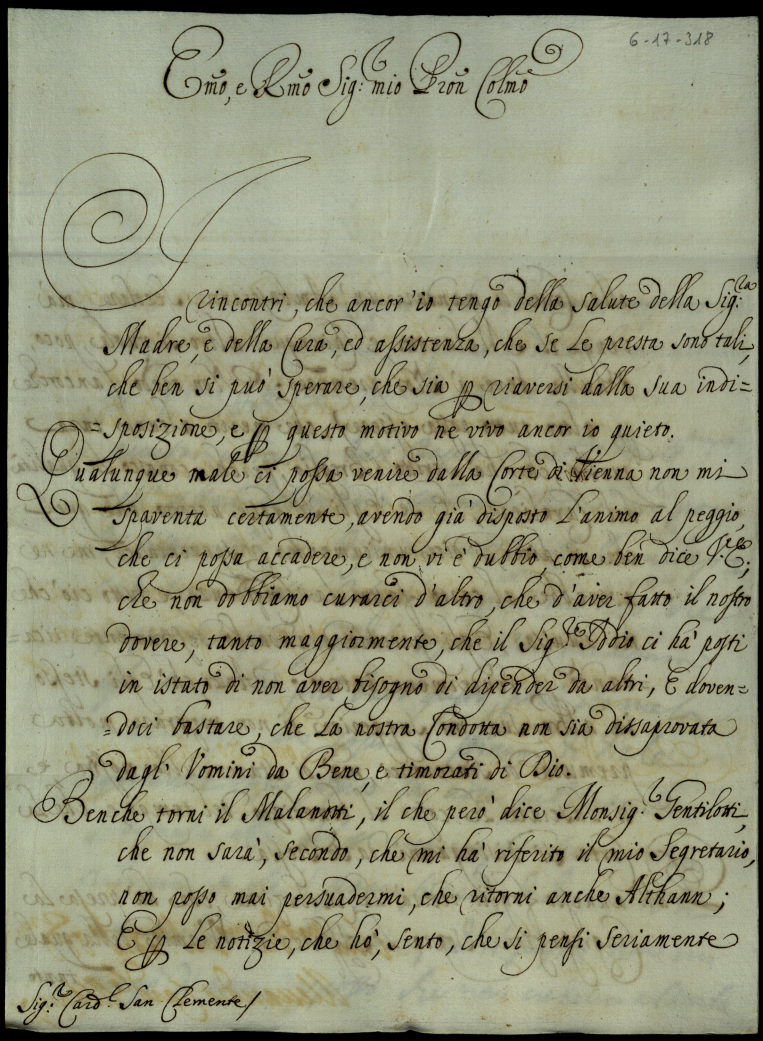 6-17-318
Emo, e Rmo Sig:r mio Pron Colmo
I rincontri, che ancor'io tengo della salute della Sig:ra
Madre, e della Cura, ed assistenza, che se Le presta sono tali,
che ben si può sperare, che sia p riaversi dalla sua indi=
=sposizione, e p questo motivo ne vivo ancor io quieto.
Qualunque male ci possa venire dalla Corte di Vienna non mi
spaventa certamente, avendo già disposto L'animo al peggio,
che ci possa accadere, e non vi è dubbio, come ben dice V. E.,
che non dobbiamo curarci d'altro, che d'aver fatto il nostro
dovere, tanto maggiormente, che il Sig:re Iddio ci hà posti
in istato di non aver bisogno di dipender da altri, E doven=
=doci bastare, che La nostra Condotta non sia disaprovata
dagl' Vomini da Bene, e timorati di Dio.
Benche torni il Malanotti, il che però dice Monsig:r Gentilotti,
che non sarà, secondo, che mi hà riferito il mio Segretario,
non posso mai persuadermi, che ritorni anche Althann;
E p Le notizie, che hò, sento, che si pensi seriamente
Sig:r Card:l San Clemente/